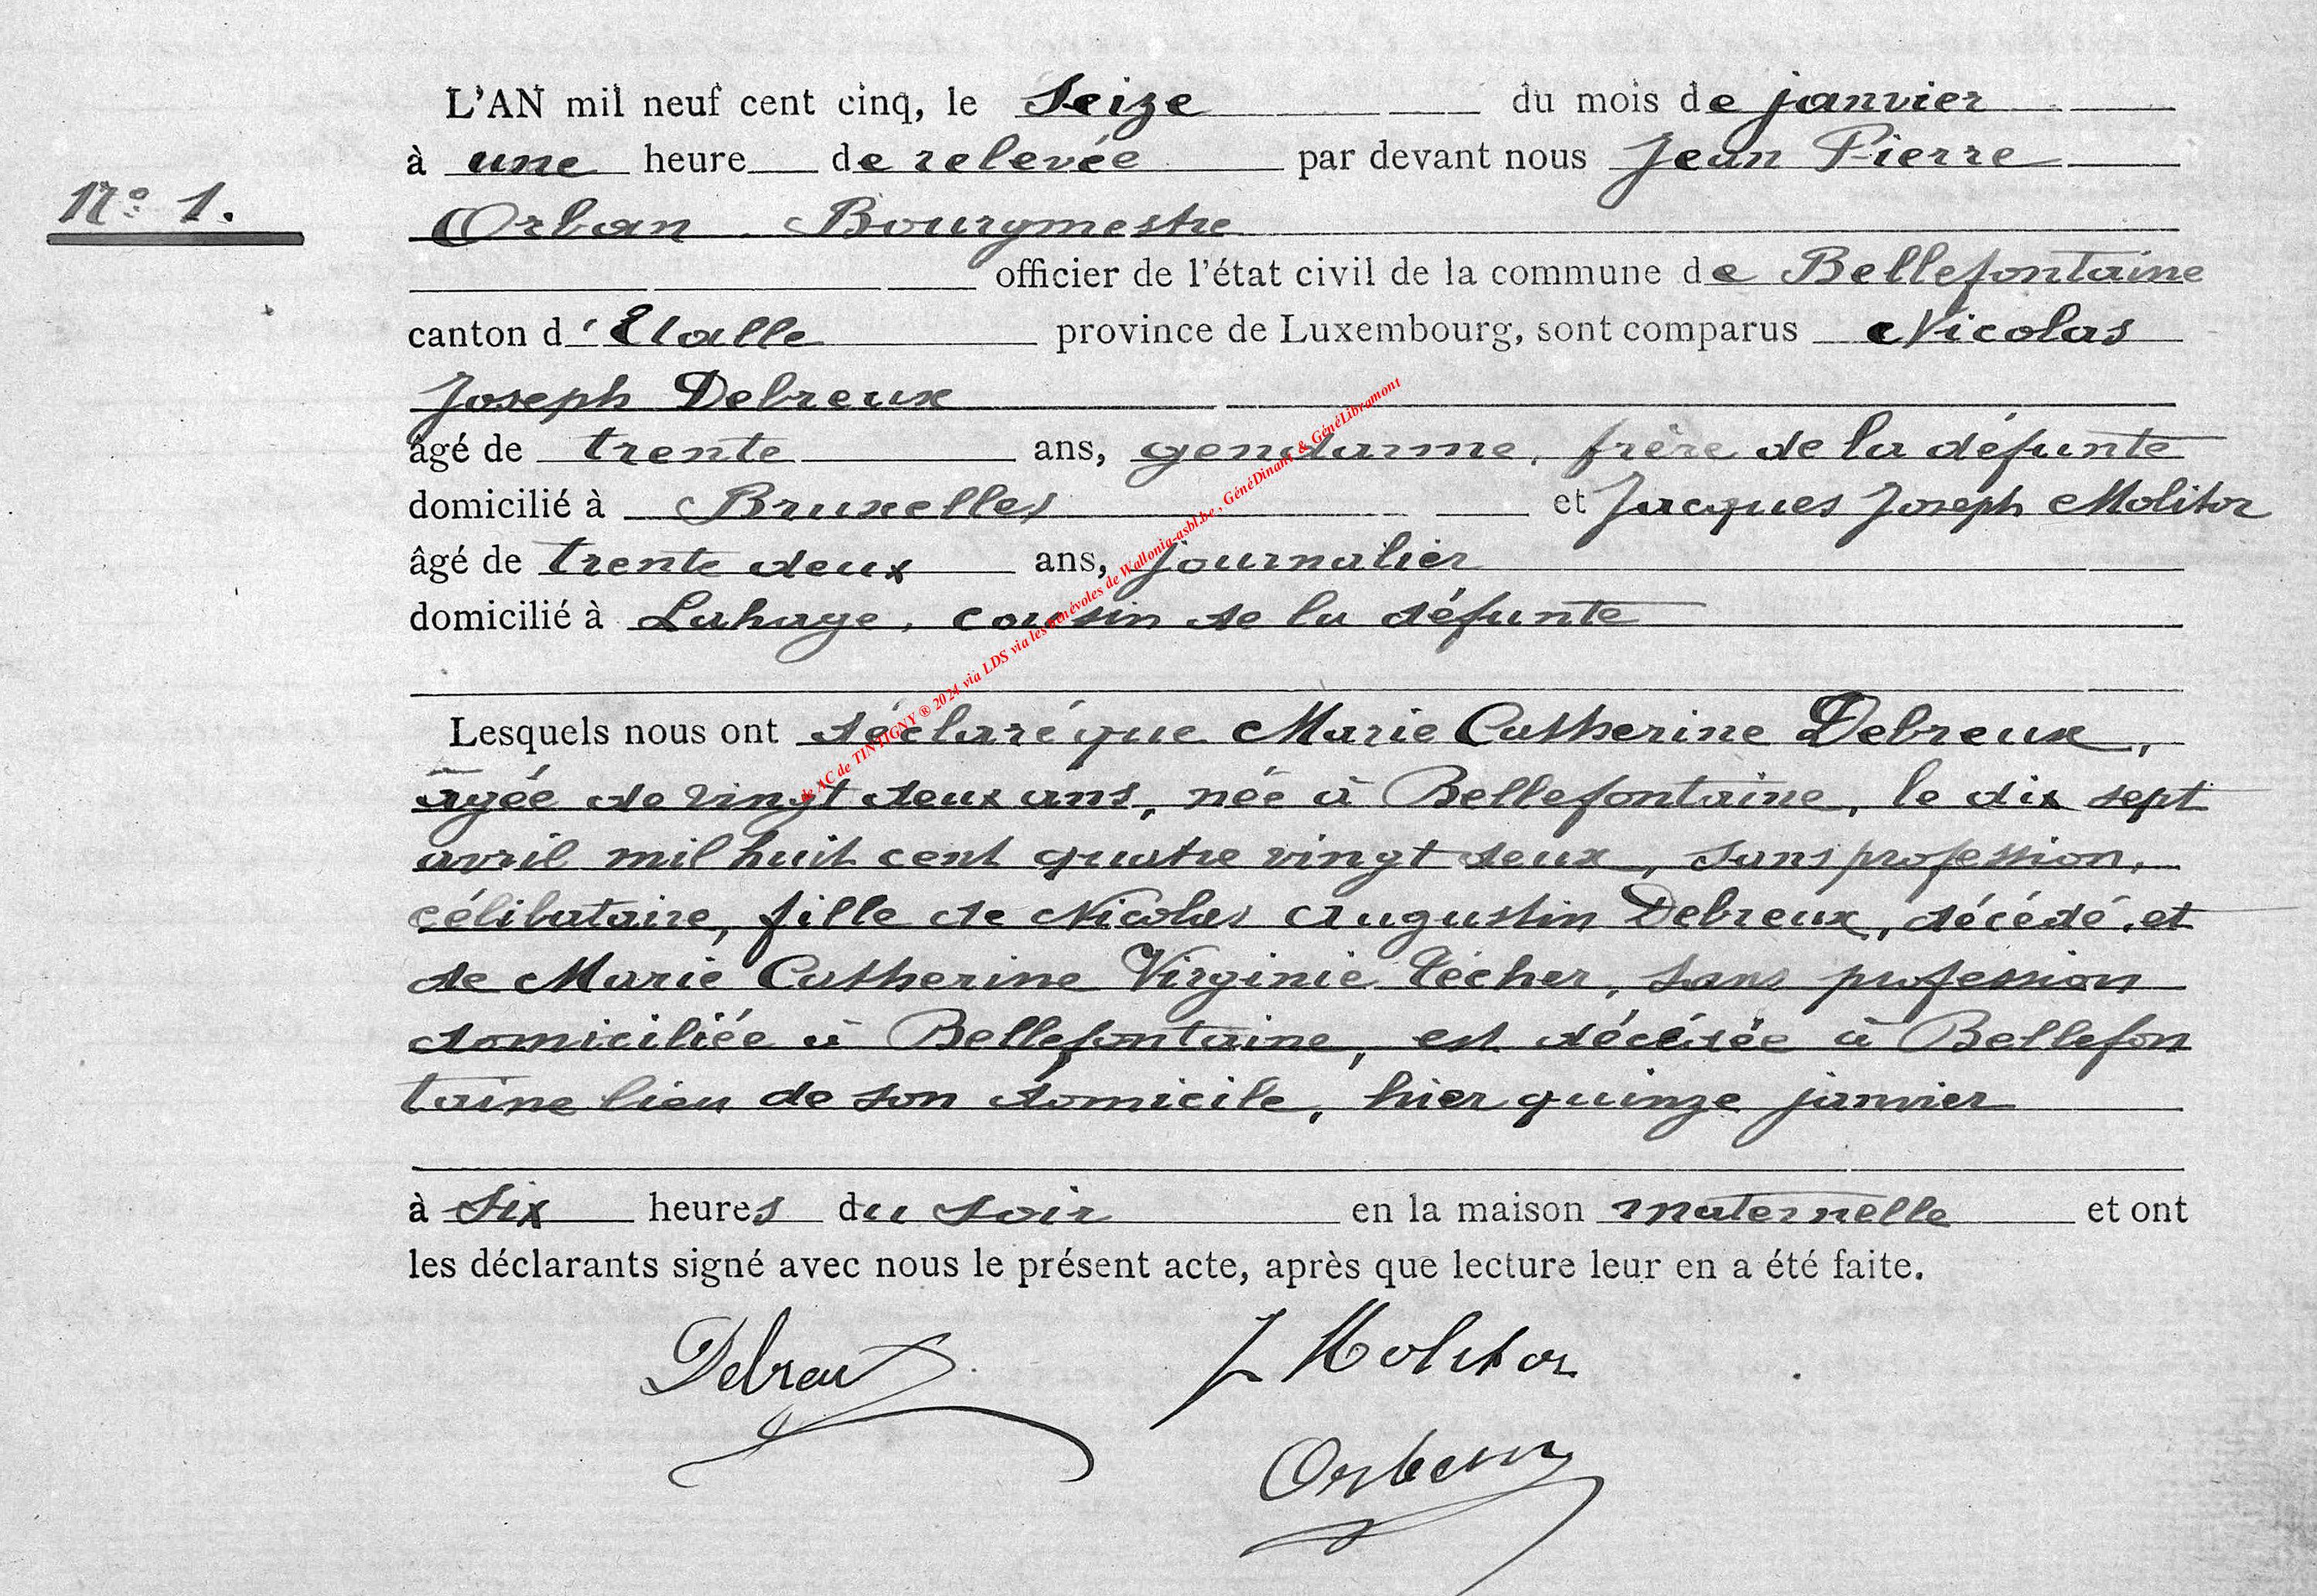 L'AN mil neuf cent cinq, le Seize du mois de janvier
à une heure de relevée par devant nous Jean Pierre
N° 1.
Orban Bourgmestre
officier de l'état civil de la commune de Bellefontaine
canton d'Etalle province de Luxembourg, sont comparus Nicolas
Joseph Debreux
âgé de trente ans, gendarme, frère de la défunte
domicilié à Bruxelles et Jacques Joseph Molitor
âgé de trente deux ans, journalier
domicilié à Lahage, cousin de la défunte
Lesquels nous ont déclaré que Marie Catherine Debreux,
âgée de vingt deux ans, née à Bellefontaine, le dix sept
avril mil huit cent quatre vingt deux, sans profession,
célibataire, fille de Nicolas Augustin Debreux, décédé, et
de Marie Catherine Virginie Pécher, sans profession
domiciliée à Bellefontaine, est décédée à Bellefon
taine lieu de son domicile, hier quinze janvier
à six heures du soir en la maison maternelle et ont
les déclarants signé avec nous le présent acte, après que lecture leur en a été faite.
Debreux J Molitor
Orban
de AC de TINTIGNY ® 2024 via LDS via les bénévoles de Wallonia-asbl.be , GénéDinant & GénéLibramont